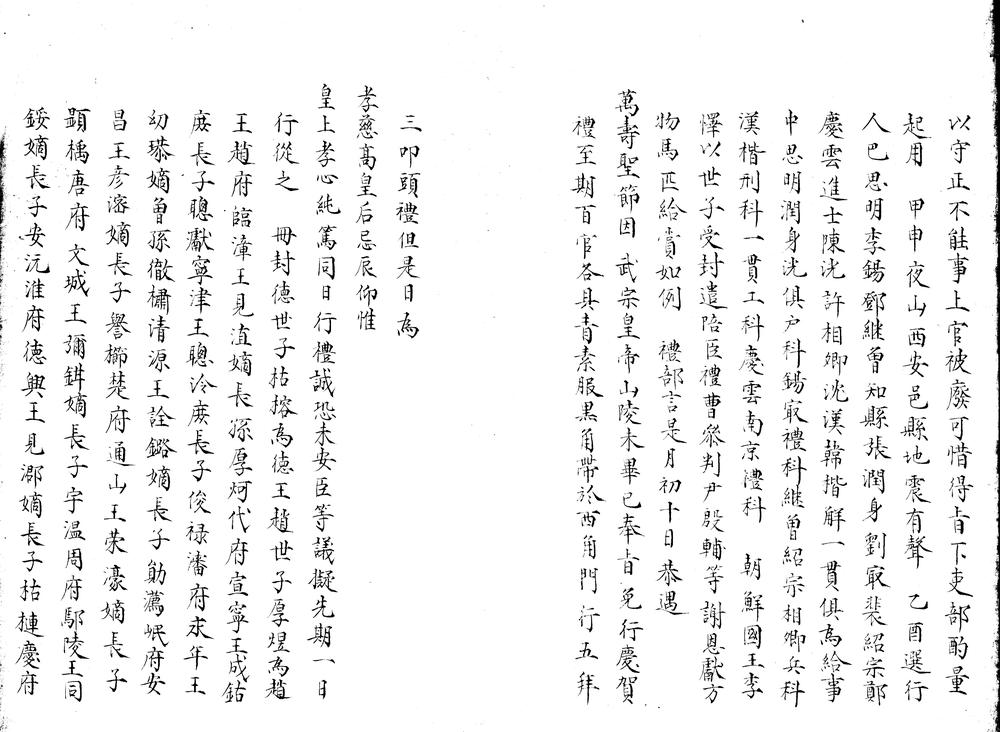 以守正不能事上官被廢可惜得㫖下吏部酌量
起用　甲申夜山西安邑縣地震有聲　乙酉選行
人巴思明李錫鄧繼曾知縣張潤身劉㝡裴紹宗鄭
慶雲進士陳洸許相卿沈漢韓揩解一貫俱為給事
中思明潤身洸俱户科錫㝡禮科繼曾紹宗相卿兵科
漢楷刑科一貫工科慶雲南京禮科　朝鮮國王李
懌以世子受封遣陪臣禮曹叅判尹殷輔等謝恩獻方
物馬匹給賞如例　禮部言是月初十日恭遇
萬壽聖節因　武宗皇帝山陵未畢已奉㫖免行慶賀
禮至期百官各具青素服黒角帶於西角門行五拜
三叩頭禮但是日為
孝慈髙皇后忌辰仰惟
皇上孝心純篤同日行禮誠恐未安臣等議擬先期一日
行從之　冊封徳世子祐榕為徳王趙世子厚煜為趙
王趙府臨漳王見湞嫡長孫厚炣代府宣寧王成鈷
庶長子聰㵙寧津王聰泠庶長子俊禄瀋府永年王
幼㙷嫡曽孫徹橚清源王詮鏴嫡長子勛㵾岷府安
昌王彦溶嫡長子譽櫛楚府通山王荣濠嫡長子
顕楀唐府文城王彌鉡嫡長子宇温周府鄢陵王同
鋖嫡長子安沅淮府徳興王見㵂嫡長子祐槤慶府